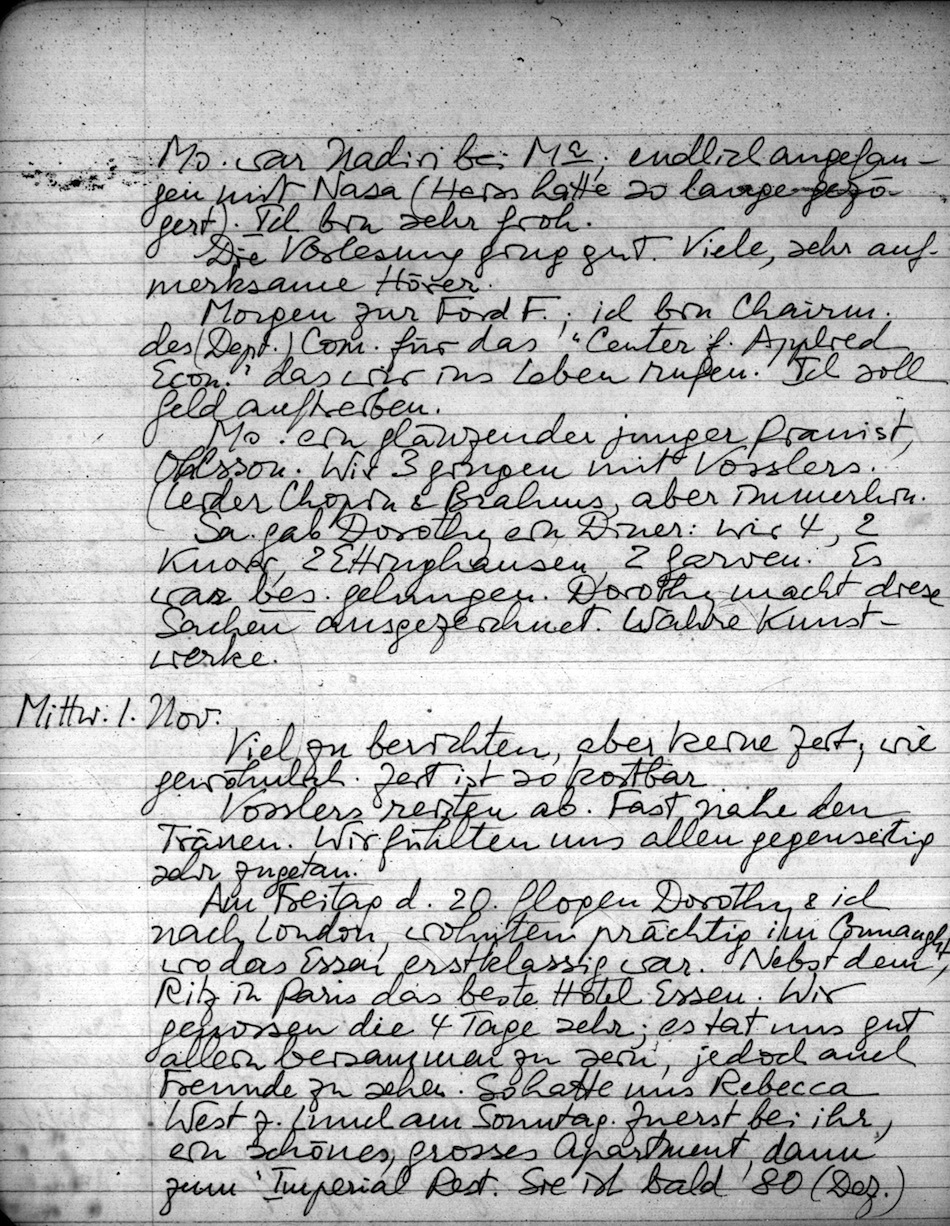 Mo. war Nadiri bei Ma; endlich angefan-
gen mit Nasa (Heiss hatte so lange gezö-
gert). Ich bin sehr froh.
Die Vorlesung ging gut. Viele, sehr auf-
merksame Hörer.
Morgen zur Ford F.; ich bin Chairm.
des (Dept.) Com. für das "Center f. Applied
Econ." das wir ins Leben rufen. Ich soll
Geld auftreiben.
Mo. ein glänzender junger Pianist,
Ohlsson. Wir 3 gingen mit Vosslers.
(Leider Chopin & Brahms, aber immerhin.
Sa. gab Dorothy ein Diner: wir 4, 2
Knorr, 2 Ettinghausen, 2 Garven. Es
war bes. gelungen. Dorothy macht diese
Sachen ausgezeichnet. Wahre Kunst-
werke.
Mittw. 1. Nov.
Viel zu berichten, aber keine Zeit, wie
gewöhnlich. Zeit ist so kostbar
Vosslers reisten ab. Fast nahe den
Tränen. Wir fühlten uns allen gegenseitig
sehr zugetan.
Am Freitag d. 20. flogen Dorothy & ich
nach London, wohnten prächtig im Connaught,
wo das Essen erstklassig war. Nebst dem
Ritz in Paris das beste Hotel Essen. Wir
genossen die 4 Tage sehr; es tat uns gut
allein beisammen zu sein, jedoch auch
Freunde zu sehen. So hatte uns Rebecca
West z. Lunch am Sonntag. Zuerst bei ihr,
ein schönes, grosses Apartment, dann
zum Imperial Rest. Sie ist bald 80 (Dez.)